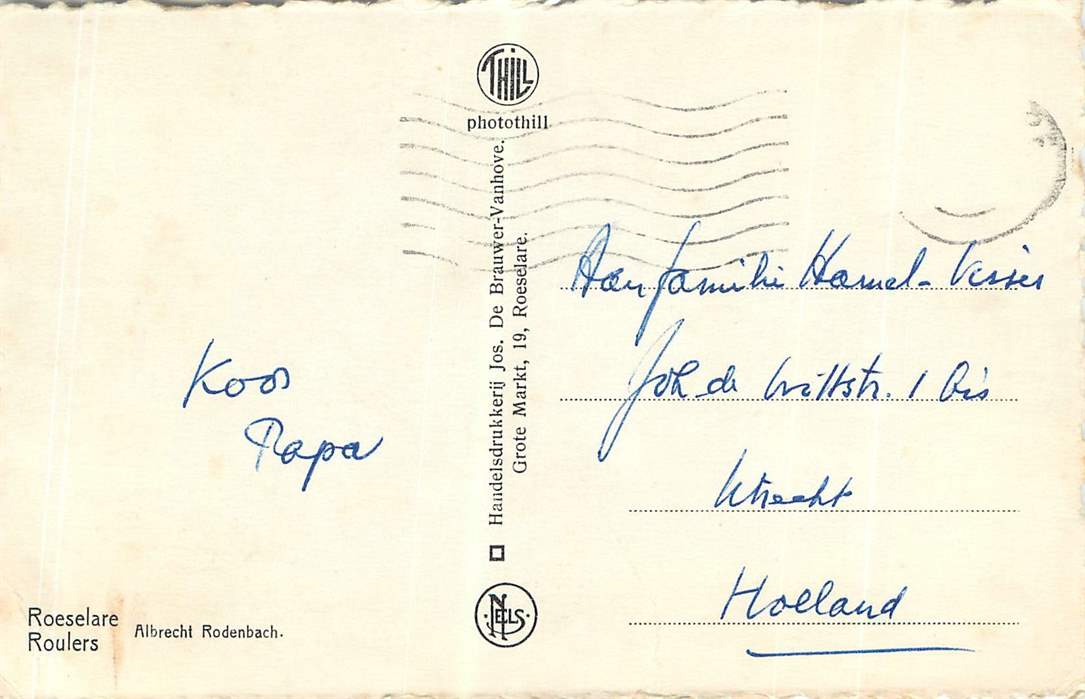 THILL
photothill
Handelsdrukkerij Jos. De Brauwer-Vanhove.
Grote Markt, 19, Roeselare.
NELS
Koos
Papa
Aan familie Hamel-Visser
Joh de Wittstr. 1 bis
Utrecht
Holland
Roeselare
Roulers
Albrecht Rodenbach.